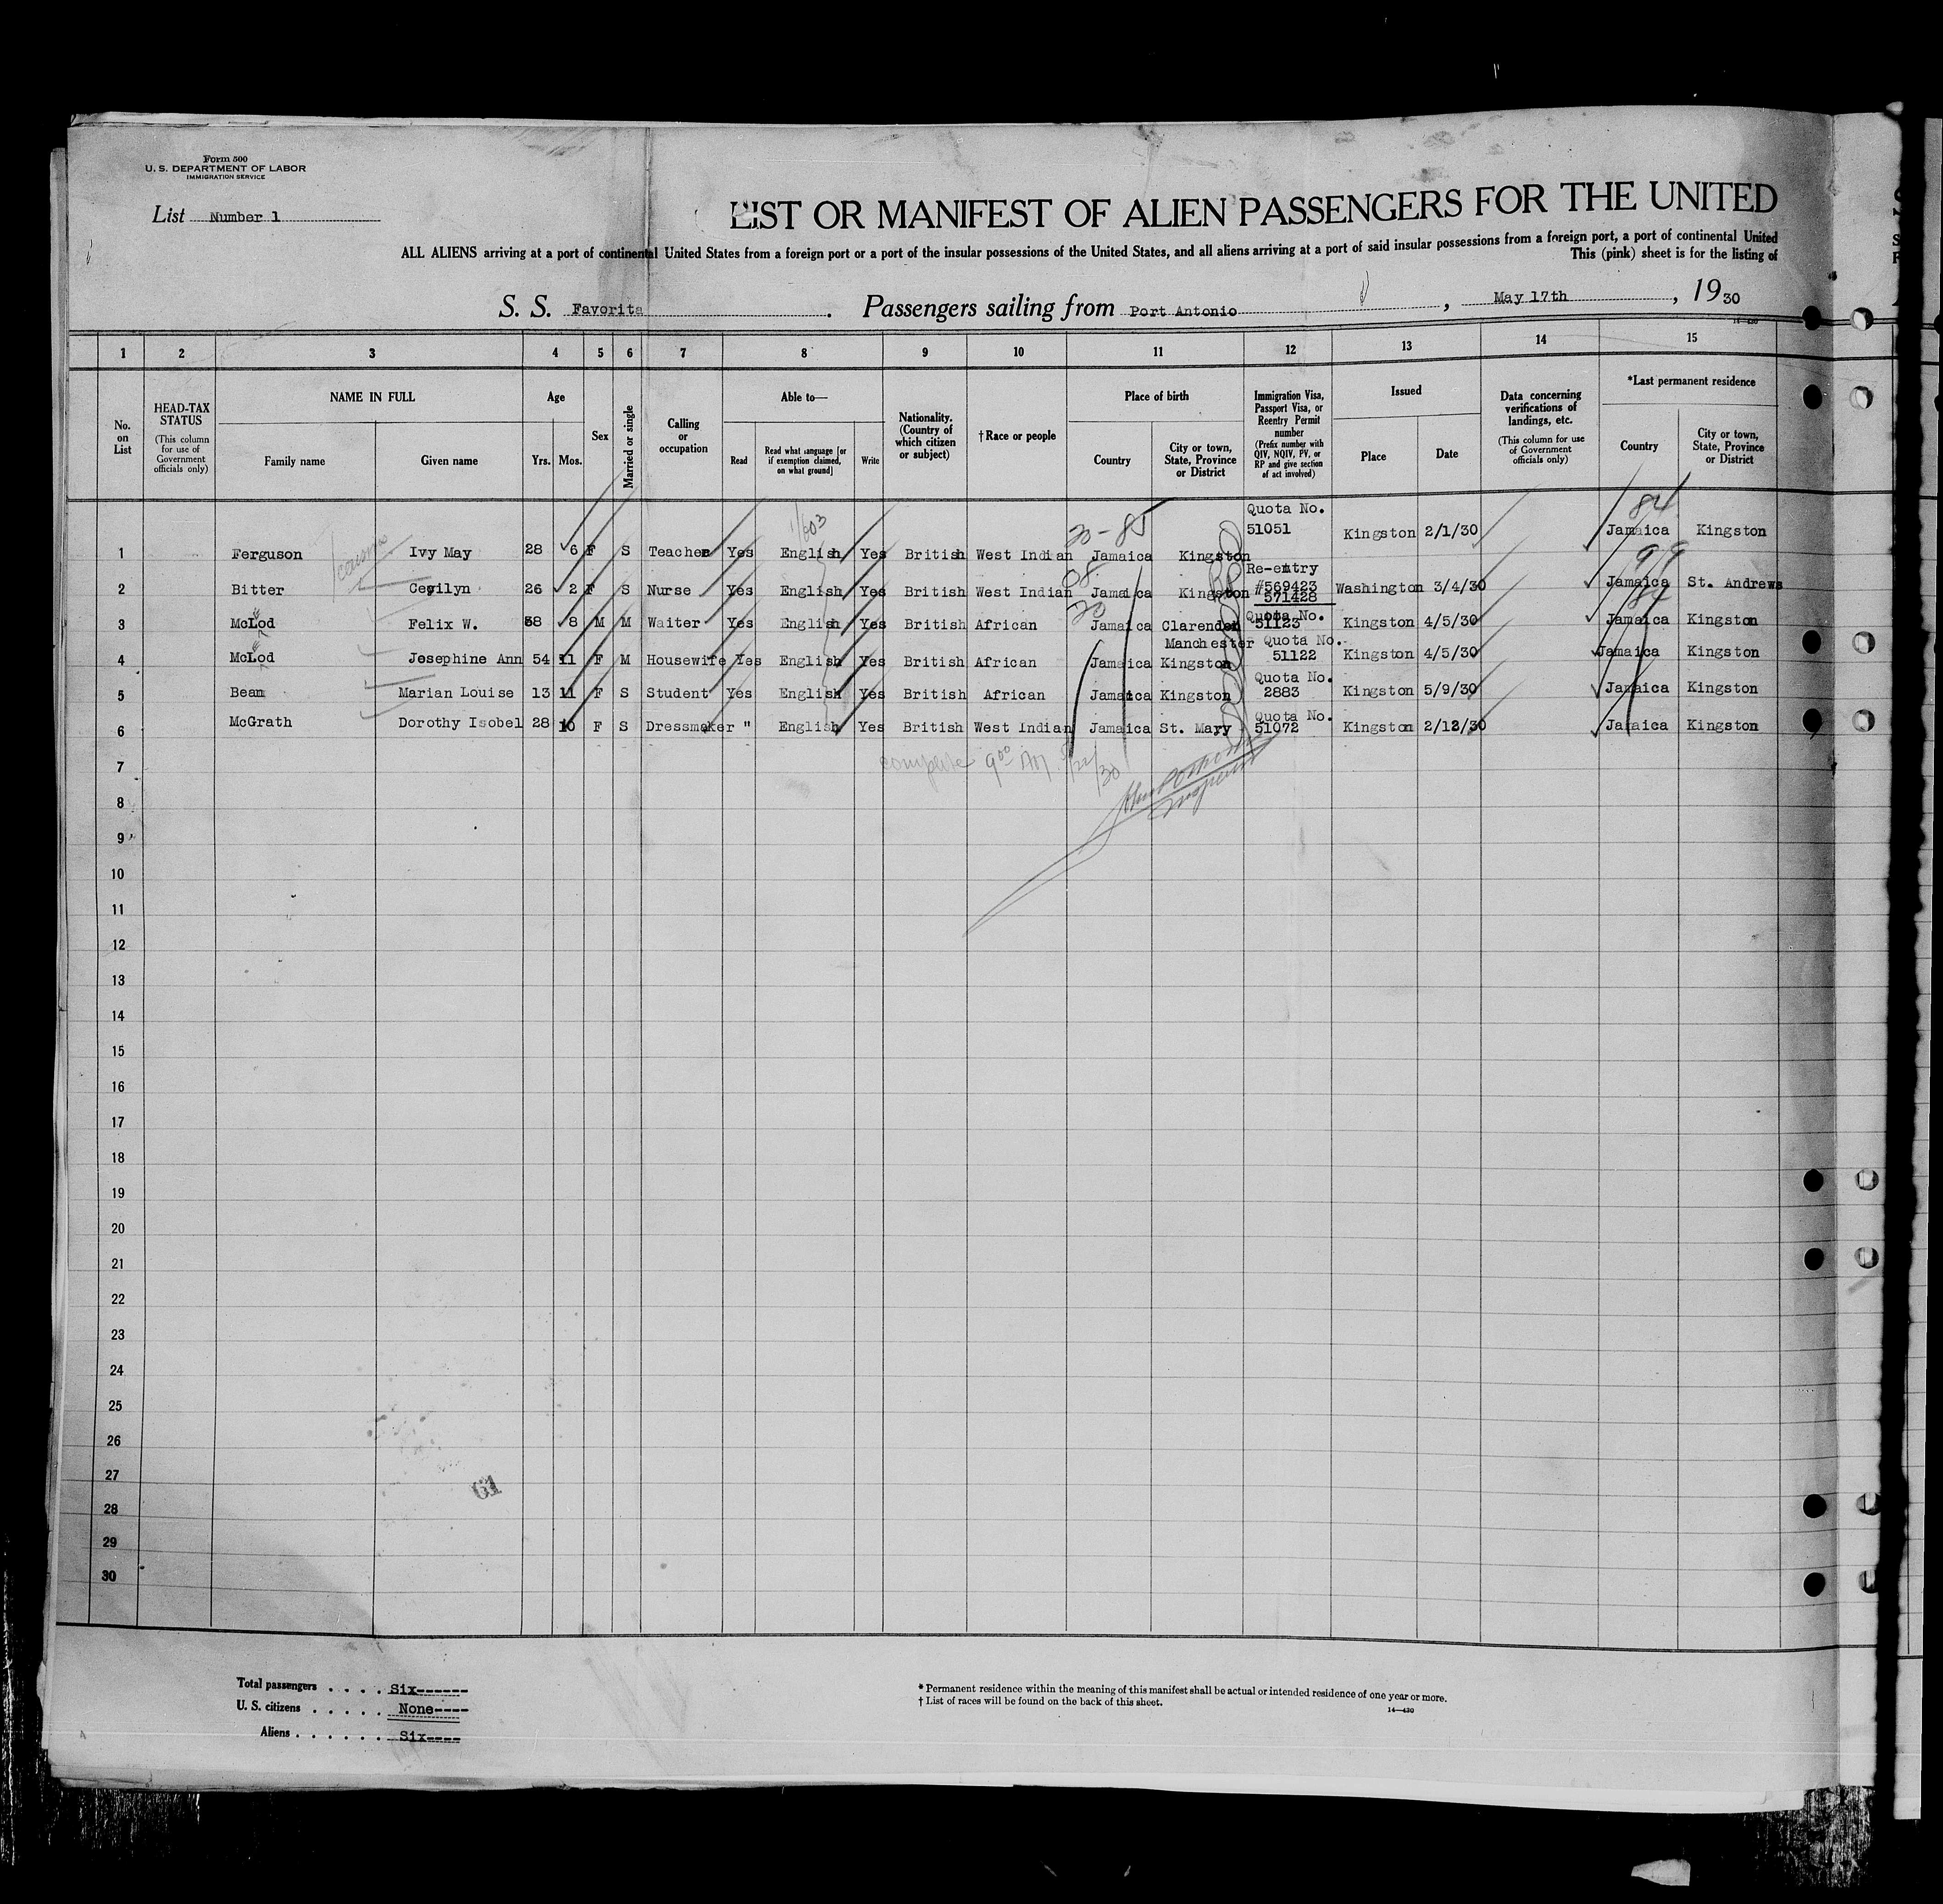 Form 500
U. S. DEPARTMENT OF LABOR
IMMIGRATION SERVICE
List Number 1
LIST OR MANIFEST OF ALIEN PASSENGERS FOR THE UNITED
ALL ALIENS arriving at a port of continental United States from a foreign port or a port of the insular possessions of the United States, and all aliens arriving at a port of said insular possessions from a foreign port, a port of continental United
This (pink) sheet is for the listing of
S. S. Favorita . Passengers sailing from Port Antonio , May 17th , 1930
1 2 3 4 5 6 7 8 9 10 11 12 13 14 15
No. on List
HEAD-TAX STATUS
(This column for use of Government officials only)
NAME IN FULL
Family name
Given name
Age
Yrs. Mos.
Sex
Married or single
Calling or occupation
Able to—
Read
Read what language [or if exemption claimed, on what ground]
Write
Nationality. (Country of which citizen or subject)
† Race or people
Place of birth
Country
City or town, State, Province or District
Immigration Visa, Passport Visa, or Reentry Permit number
(Prefix number with QIV, NQIV, PV, or RP and give section of act involved)
Issued
Place
Date
Data concerning verifications of landings, etc.
(This column for use of Government officials only)
*Last permanent residence
Country
City or town, State, Province or District
1/603
20-85
84
Quota No.
1 Ferguson Ivy May 28 6 F S Teacher Yes English Yes British West Indian Jamaica Kingston 51051 Kingston 2/1/30 Jamaica Kingston
08
Re-entry
2 Bitter Cerilyn 26 2 F S Nurse Yes English Yes British West Indian Jamaica Kingston #569423 Washington 3/4/30 Jamaica St. Andrews
571428
20
Quota No.
3 McLod Felix W. 58 8 M M Waiter Yes English Yes British African Jamaica Clarendon 51123 Kingston 4/5/30 Jamaica Kingston
Manchester Quota No.
4 McLod Josephine Ann 54 11 F M Housewife Yes English Yes British African Jamaica Kingston 51122 Kingston 4/5/30 Jamaica Kingston
Quota No.
5 Bean Marian Louise 13 11 F S Student Yes English Yes British African Jamaica Kingston 2883 Kingston 5/9/30 Jamaica Kingston
Quota No.
6 McGrath Dorothy Isobel 28 10 F S Dressmaker " English Yes British West Indian Jamaica St. Mary 51072 Kingston 2/12/30 Jamaica Kingston
complete 9 00 AM 5/22/30
Inspector
7
8
9
10
11
12
13
14
15
16
17
18
19
20
21
22
23
24
25
26
27
61
28
29
30
Total passengers . . . . Six------
U. S. citizens . . . . . None----
Aliens . . . . . . Six----
* Permanent residence within the meaning of this manifest shall be actual or intended residence of one year or more.
† List of races will be found on the back of this sheet.
14—430